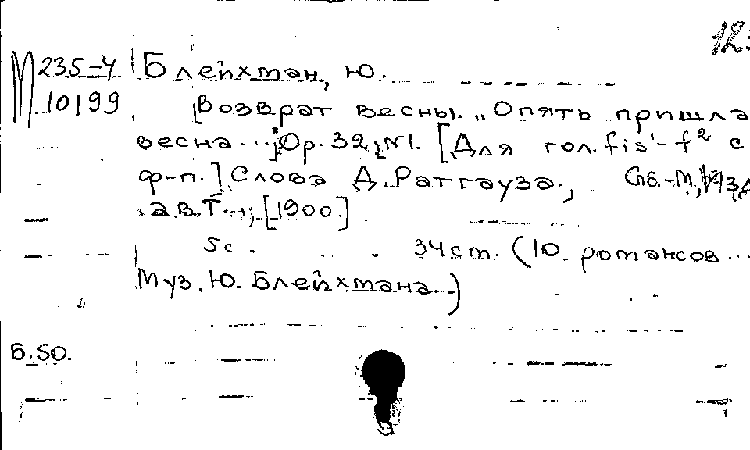 12
М 235-4 Блейхман, Ю.
10199 [Возврат весны. „Опять пришла
весна...] Ор. 32, №1. [Для гол. fis¹-f² с
ф-п.] Слова Д. Ратгауза.,
авт., [1900]
5с. 34 ст. (10. романсов...
Муз. Ю. Блейхмана.)
Б.50.